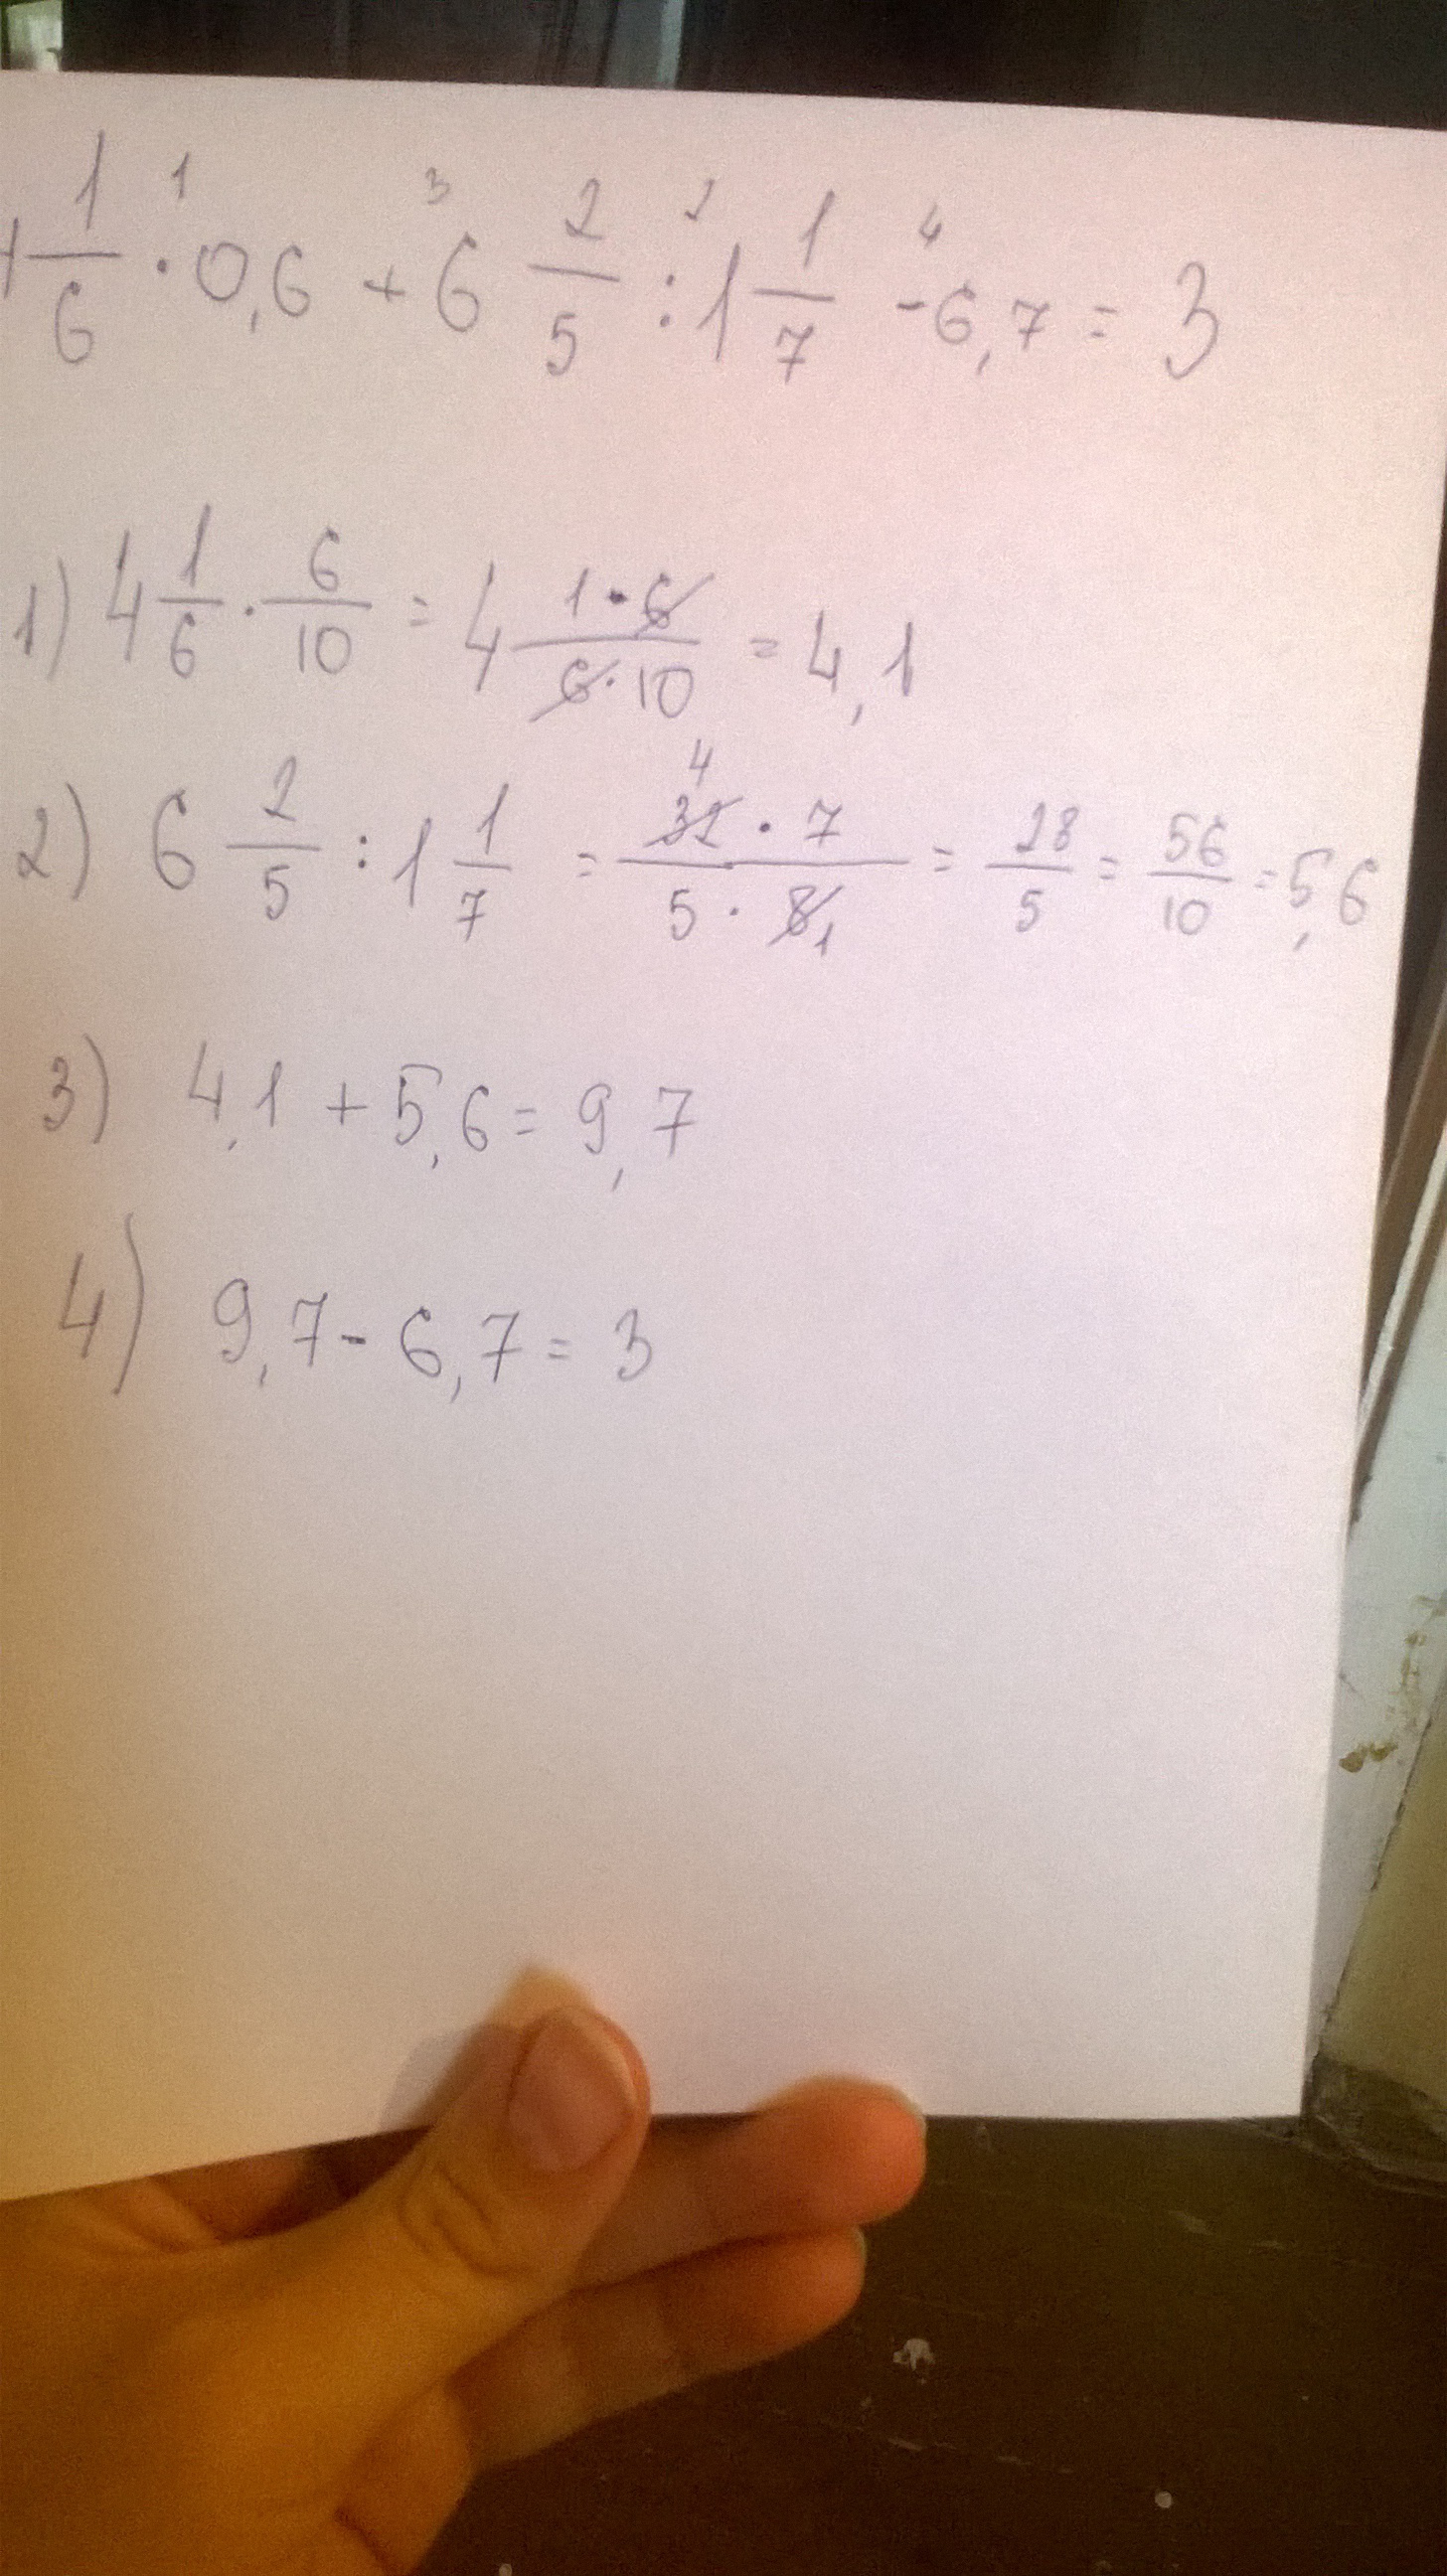 4 1/6 · 0,6 + 6 2/5 : 1 1/7 - 6,7 = 3
1) 4 1/6 · 6/10 = 4 1·6/6·10 = 4,1
2) 6 2/5 : 1 1/7 = 32·7/5·8 = 28/5 = 56/10 = 5,6
3) 4,1 + 5,6 = 9,7
4) 9,7 - 6,7 = 3